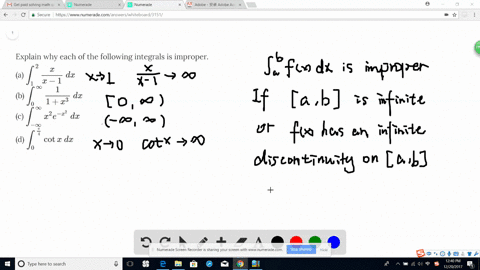 Get paid solving math p
Numerade
Numerade
https://www.numerade.com/answers/whiteboard/
Explain why each of the following integrals is improper.
(a) ∫_1^2 x/(x-1) dx
x→1 x/(x-1) → ∞
(b) ∫_0^∞ 1/(1+x³) dx
[0, ∞)
(c) ∫_{-∞}^∞ x² e^{-x²} dx
(-∞, ∞)
(d) ∫_0^{π/4} cot x dx
x→0 cot x → ∞
∫_a^b f(x) dx is improper
If [a,b] is infinite
or f(x) has an infinite
discontinuity on [a,b]
Numerade Screen Recorder is sharing your screen with www.numerade.com.
Stop sharing
Hide
Type here to search
12:40 PM
12/20/2017